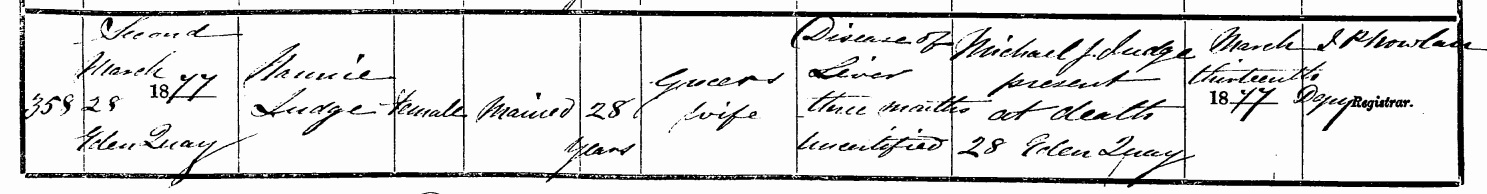 358
Second
March
1877
28
Eden Quay
Nannie
Judge
Female
Married
28
years
Grocers
wife
Disease of
Liver
three months
uncertified
Michael J. Judge
present
at death
28 Eden Quay
March
thirteenth
1877
Depy Registrar.